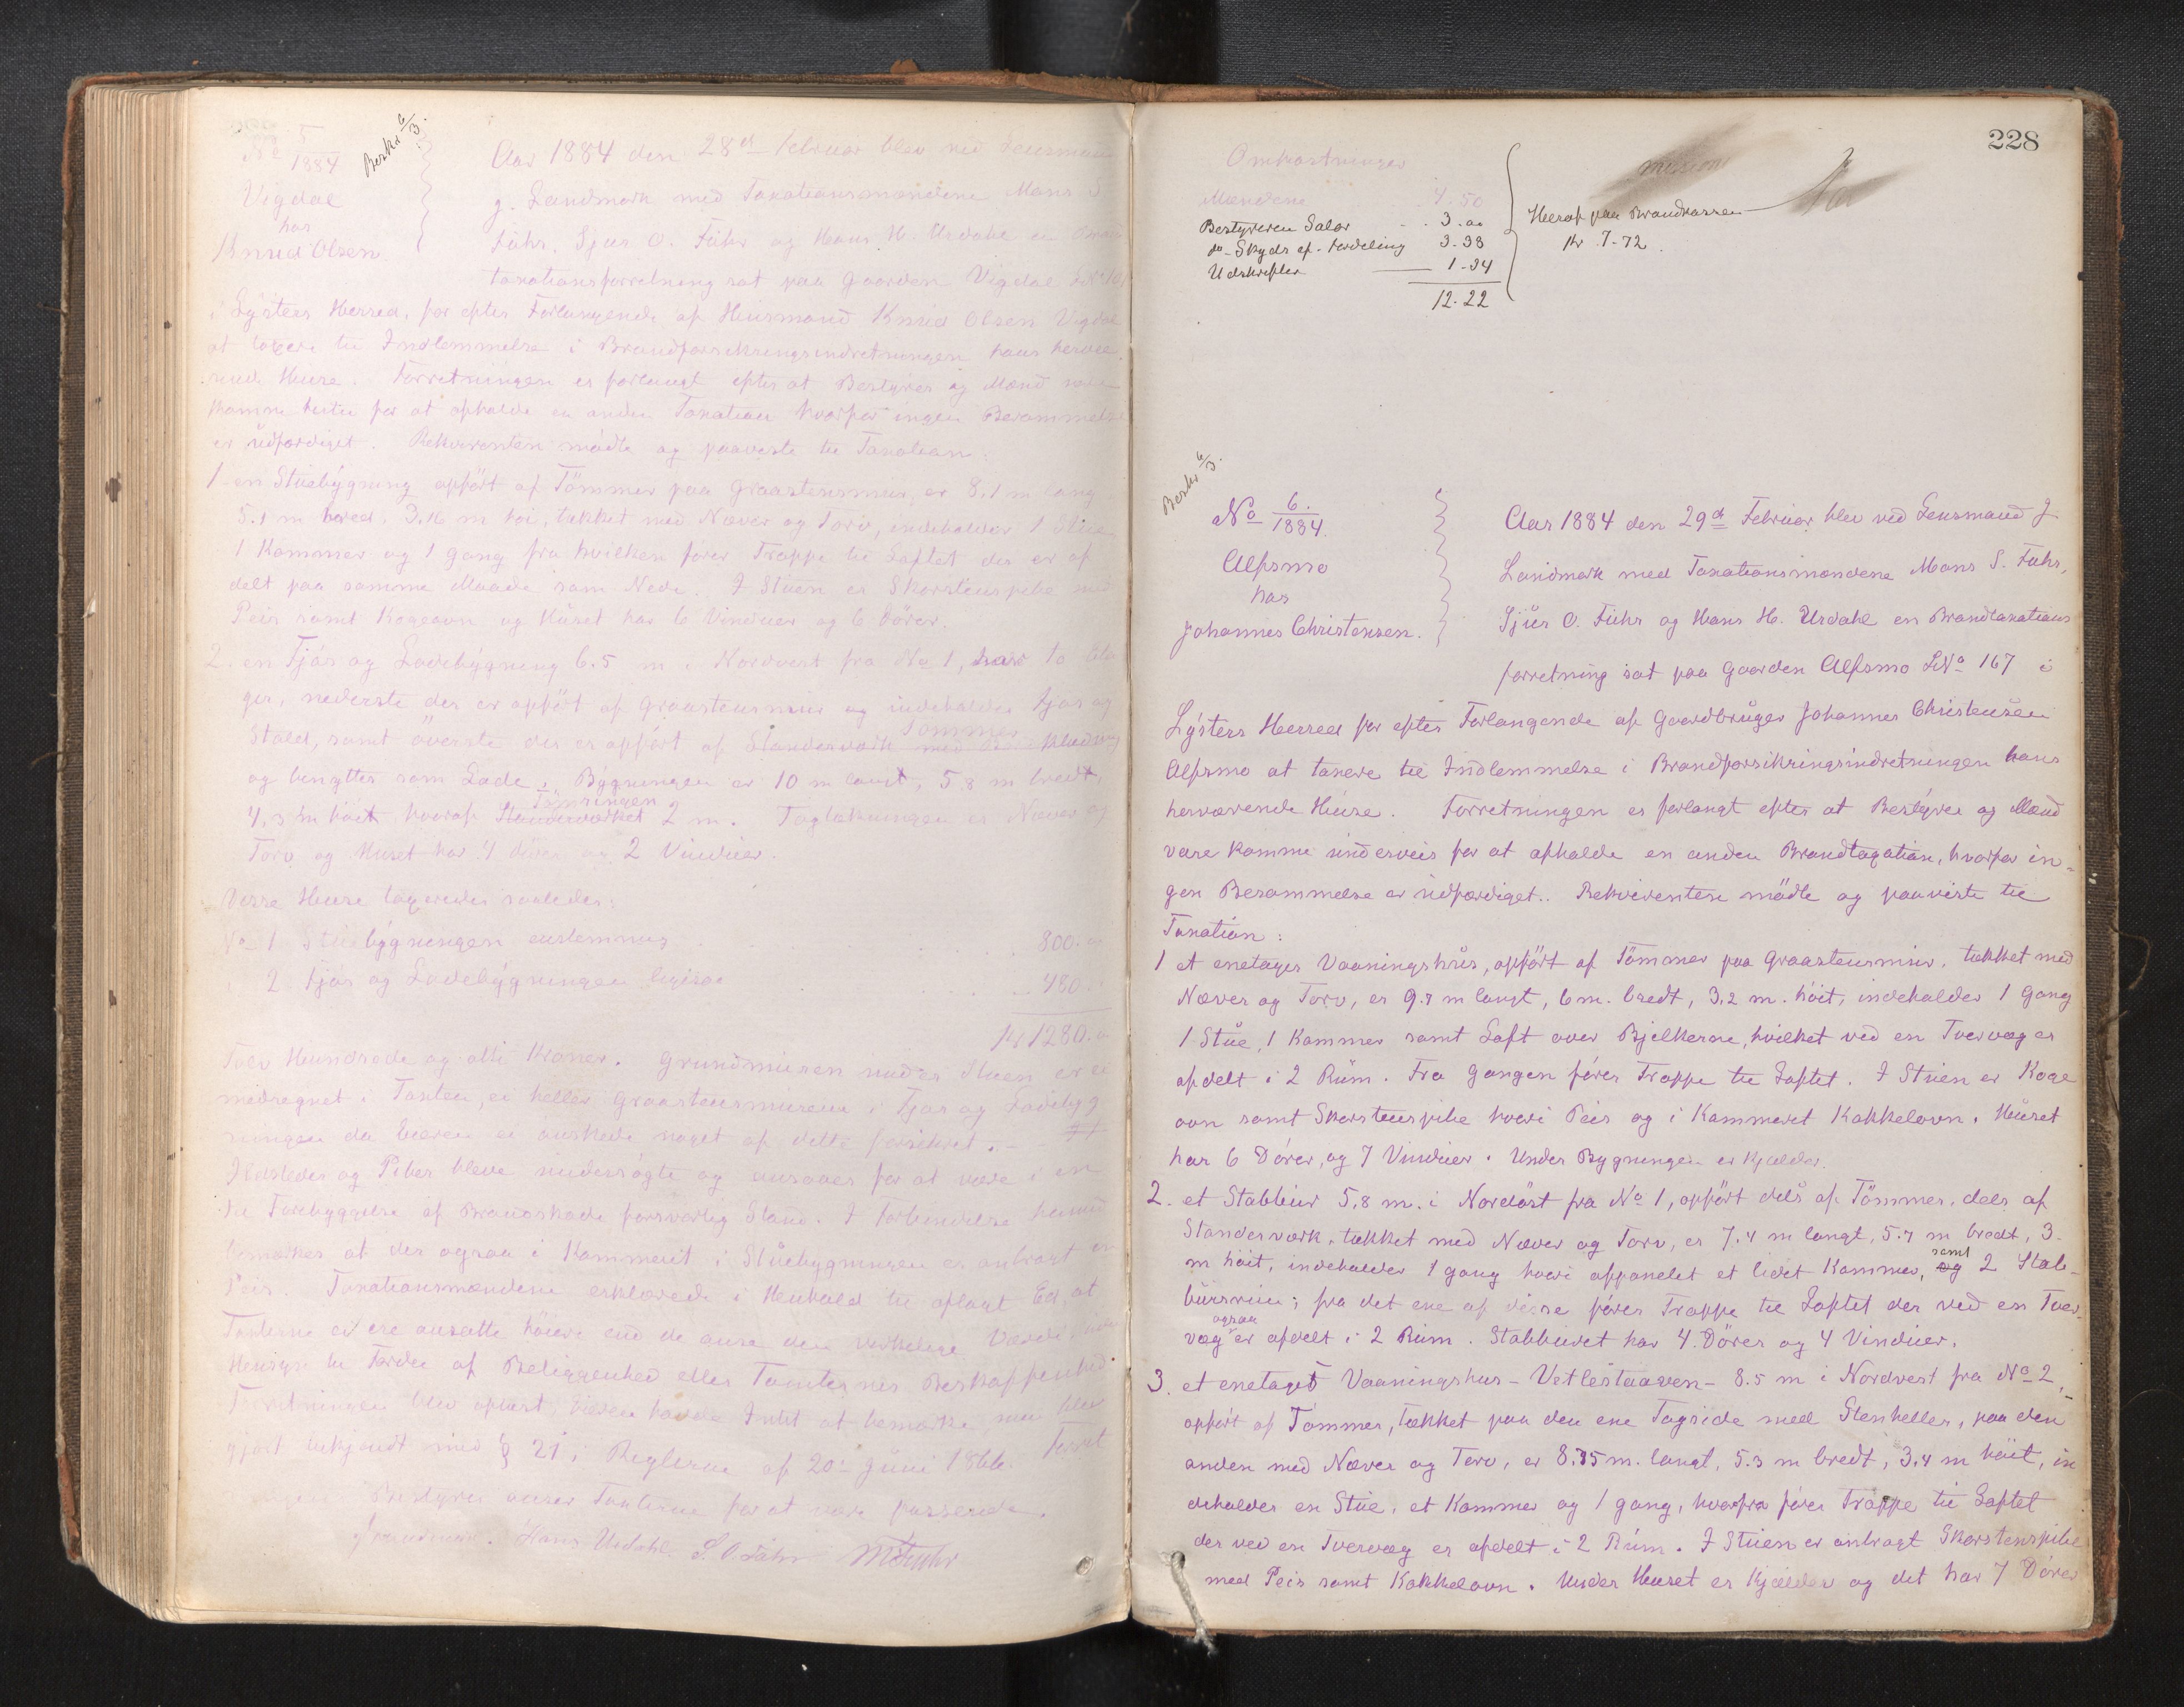 No 5/1884
Beskr 6/3.
Vigdal
hos
Knud Olsen
Aar 1884 den 28de Februar blev ved Lensmand
J. Landmark med Taxationsmændene Mons S.
Fuhr, Sjur O. Fuhr og Hans H. Urdahl en Brand
taxationsforretning sat paa Gaarden Vigdal LNo
i Lysters Herred, for efter Forlangende af Huusmand Knud Olsen Vigdal
at taxere til Indlemmelse i Brandforsikringsindretningen hans hervæ-
rende Huse. Forretningen er forlangt efter at Bestyrer og Mænd vare
komne hertil for at afholde en anden Taxation hvorfor ingen Berammelse
er udfærdiget. Rekvirenten mødte og paaviste til Taxation:
1 en Stuebygning opført af Tömmer paa Graastensmur, er 8,1 m lang
5.1 m bred, 3,16 m høi, tækket med Næver og Torv, indeholder 1 Stue
1 Kammer og 1 Gang fra hvilken fører Trappe til Loftet der er af
delt paa samme Maade som Nede. I Stuen er Skorstenspibe med
Peis samt Kogeovn og Huset har 6 Vinduer og 6 Dörer.
2. en Fjös og Ladebygning 6.5 m i Nordvest fra No 1, har to Eta
ger, nederste der er opført af Graastensmur og indeholder Fjøs og
Stald, samt överste der er opført af Standerværk med Bordklædning
Tømmer
og benyttes som Lade. Bygningen er 10 m langt, 5.8 m bredt,
4,3 m höit, hvoraf Standerværket 2 m. Taglækningen er Næver og
Tømringen
Torv og Huset har 4 Dører og 2 Vinduer.
Disse Huse taxeredes saaledes:
No 1 Stuebygningen 800.
" 2 Fjös og Ladebygningen 480.
Kr 1280.
Tolv Hundrede og otti Kroner. Grundmuren under Stuen er ei
medregnet i Taxten, ei heller Graastensmuren i Fjøs og Ladebyg
ningen da Eieren ei önskede noget af dette forsikret.
Ildsteder og Piber bleve undersøgte og ansaaes for at være i en
til Forebyggelse af Brandskade forsvarlig Stand. I Forbindelse hermed
bemærkes at der ogsaa i Kammeret i Stuebygningen er anbragt en
Peis. Taxationsmændene erklærede i Henhold til aflagt Ed, at
Taxterne ei ere ansatte höiere end de anse den virkelige Værdi,
Hensyn til Fordel af Beliggenhed eller Tomternes Beskaffenhed.
Forretningen blev oplæst, Eieren havde Intet at bemærke, men blev
gjort bekjendt med § 21 i Reglerne af 20de Juni 1866. Forret
Bestyrer anser Taxterne for at være passende.
J Landmark. Hans Urdahl S. O Fuhr M S Fuhr
228
Omkostninger
Mændene 4.50
Bestyreren Salær 3.00
do - Skyds ef. Fordeling 3-38
Udskrifter 1-34
12.22
Heraf paa Brandkassen
Kr 7-72.
Beskr 6/3.
No 6./1884.
Alfsmo
hos
Johannes Christensen.
Aar 1884 den 29de Februar blev ved Lensmand J
Landmark med Taxationsmændene Mons S. Fuhr,
Sjur O. Fuhr og Hans H. Urdahl en Brandtaxations
forretning sat paa Gaarden Alfsmo LNo 167 i
Lysters Herred for efter Forlangende af Gaardbruger Johannes Christensen
Alfsmo at taxere til Indlemmelse i Brandforsikringsindretningen hans
herværende Huse. Forretningen er forlangt efter at Bestyrer og Mænd
vare komne underveis for at afholde en anden Brandtaxation, hvorfor in-
gen Berammelse er udfærdiget.. Rekvirenten mödte og paaviste til
Taxation:
1 et enetages Vaaningshus, opfört af Tömmer paa Graastensmur, tækket med
Næver og Torv, er 9.7 m langt, 6 m. bredt, 3,2 m. höit, indeholder 1 Gang
1 Stue, 1 Kammer samt Loft over Bjelkerne, hvilket ved en Tvervæg er
afdelt i 2 Rum. Fra Gangen fører Trappe til Loftet. I Stuen er Koge
ovn samt Skorstenspibe hvori Peis og i Kammeret Kakkelovn. Huset
har 6 Dörer, og 7 Vinduer. Under Bygningen er Kjælder.
2. et Stabbur 5,8 m. i Nordöst fra No 1, opfört dels af Tömmer, dels af
Standerværk, tækket med Næver og Torv, er 7.4 m langt, 5.7 m bredt, 3.
m höit, indeholder 1 Gang hvori afpanelet et lidet Kammer, og 2 Stab-
samt
bursrum; fra det ene af disse fører Trappe til Loftet der ved en Tver
væg er afdelt i 2 Rum. Stabburet har 4 Dörer og 4 Vinduer.
ogsaa
3. et enetages Vaaningshus - Vetlestaaven - 8.5 m i Nordvest fra No 2,
opført af Tömmer, tækket paa den ene Tagside med Stenheller, paa den
anden med Næver og Torv, er 8.35 m. langt, 5.3 m bredt, 3,4 m höit, in
deholder en Stue, et Kammer og 1 Gang, hvorfra fører Trappe til Loftet
der ved en Tvervæg er afdelt i 2 Rum. I Stuen er anbragt Skorstenspibe
med Peis samt Kakkelovn. Under Huset er Kjælder og det har 7 Dörer